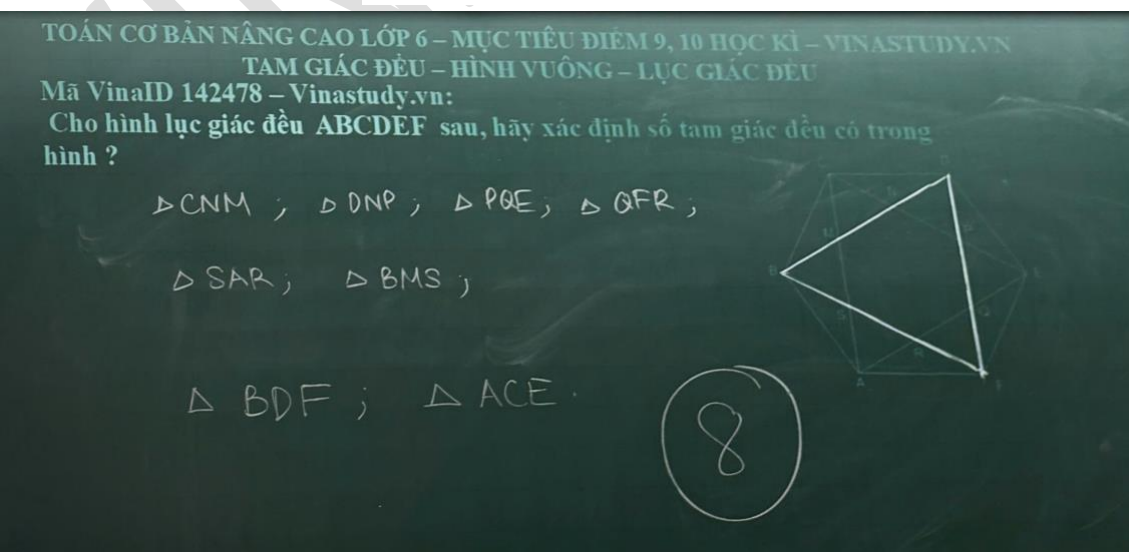 TOÁN CƠ BẢN NÂNG CAO LỚP 6 – MỤC TIÊU ĐIỂM 9, 10 HỌC KÌ – VINASTUDY.VN
TAM GIÁC ĐỀU – HÌNH VUÔNG – LỤC GIÁC ĐỀU
Mã VinaID 142478 – Vinastudy.vn:
Cho hình lục giác đều ABCDEF sau, hãy xác định số tam giác đều có trong
hình ?
△CNM ; △DNP ; △PQE ; △QFR ;
△SAR ; △BMS ;
△BDF ; △ACE .
8
D
N
M
P
B
S
Q
R
A